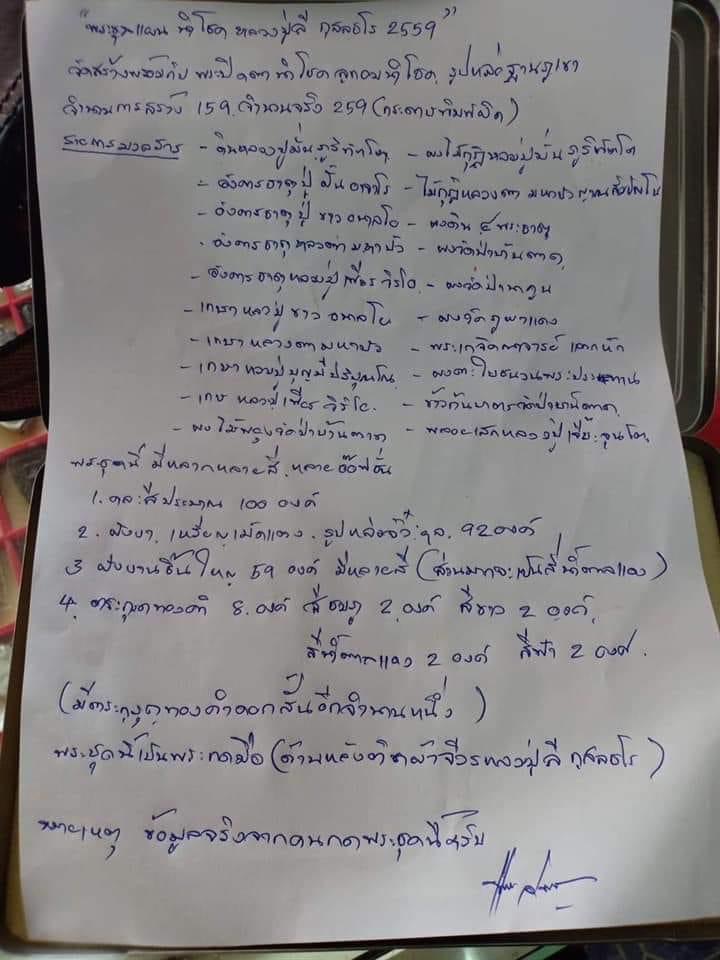 "พระขุนแผน นำโชค หลวงปู่ลี กุสลธโร 2559"
จัดสร้างพร้อมกับ พระปิดตานำโชค ลูกอมนำโชค, รูปหล่อฐานภูเขา
จำนวนการสร้าง 159, จำนวนจริง 259 (กระดาษพิมพ์ผิด)
รายการมวลสาร - ดินหลวงปู่มั่น ภูริทัตโต - ผงไม้กุฏิหลวงปู่มั่น ภูริทัตโต
- อังคารธาตุปู่ มั่น - ไม้กุฏิหลวงตา มหาบัว ญาณสัมปันโน
- อังคารธาตุปู่ ขาว อนาลโย - ผงดิน ๔ พระธาตุ
- อังคารธาตุหลวงตา มหาบัว - ผงวัดป่าบ้านตาด,
- อังคารธาตุหลวงปู่เพียร วิริโย - ผงวัดป่านาคูน
- เกษาหลวงปู่ ขาว อนาลโย - ผงวัดภูผาแดง
- เกษาหลวงตามหาบัว - พระเกจิคณาจารย์
- เกษาหลวงปู่ บุญมี ปริปุณโณ - ผงตะไบชนวนพระประธาน
- เกษาหลวงปู่เพียร วิริโย. - ข้าวก้นบาตรวัดป่าบ้านตาด,
- ผงไม้พะยูงวัดป่าบ้านตาด - พลอยเสกหลวงปู่เจี๊ยะ จุนโท
พระชุดนี้ มีหลากหลายสี, หลายอ๊อฟชั่น
1. คละสีประมาณ 100 องค์
2. ฝังยา, เหรียญเม็ดแตง, รูปหล่อจิ๋ว 92 องค์
3 ฝังบานชิ้นใหญ่ 59 องค์ มีหลายสี (ส่วนมากจะเป็นสีน้ำตาลแดง)
4. ตระกรุดทองคำ 8 องค์ สีชมพู 2 องค์ สีขาว 2 องค์,
สีน้ำตาลแดง 2 องค์ สีฟ้า 2 องค์.
(มีตระกรุดทองคำดอกสั้นอีกจำนวนหนึ่ง)
พระชุดนี้เป็นพระกดมือ (ด้านหลังติดผ้าจีวรหลวงปู่ลี กุสลธโร)
หมายเหตุ ข้อมูลจริงจากคนกดพระชุดนี้ครับ